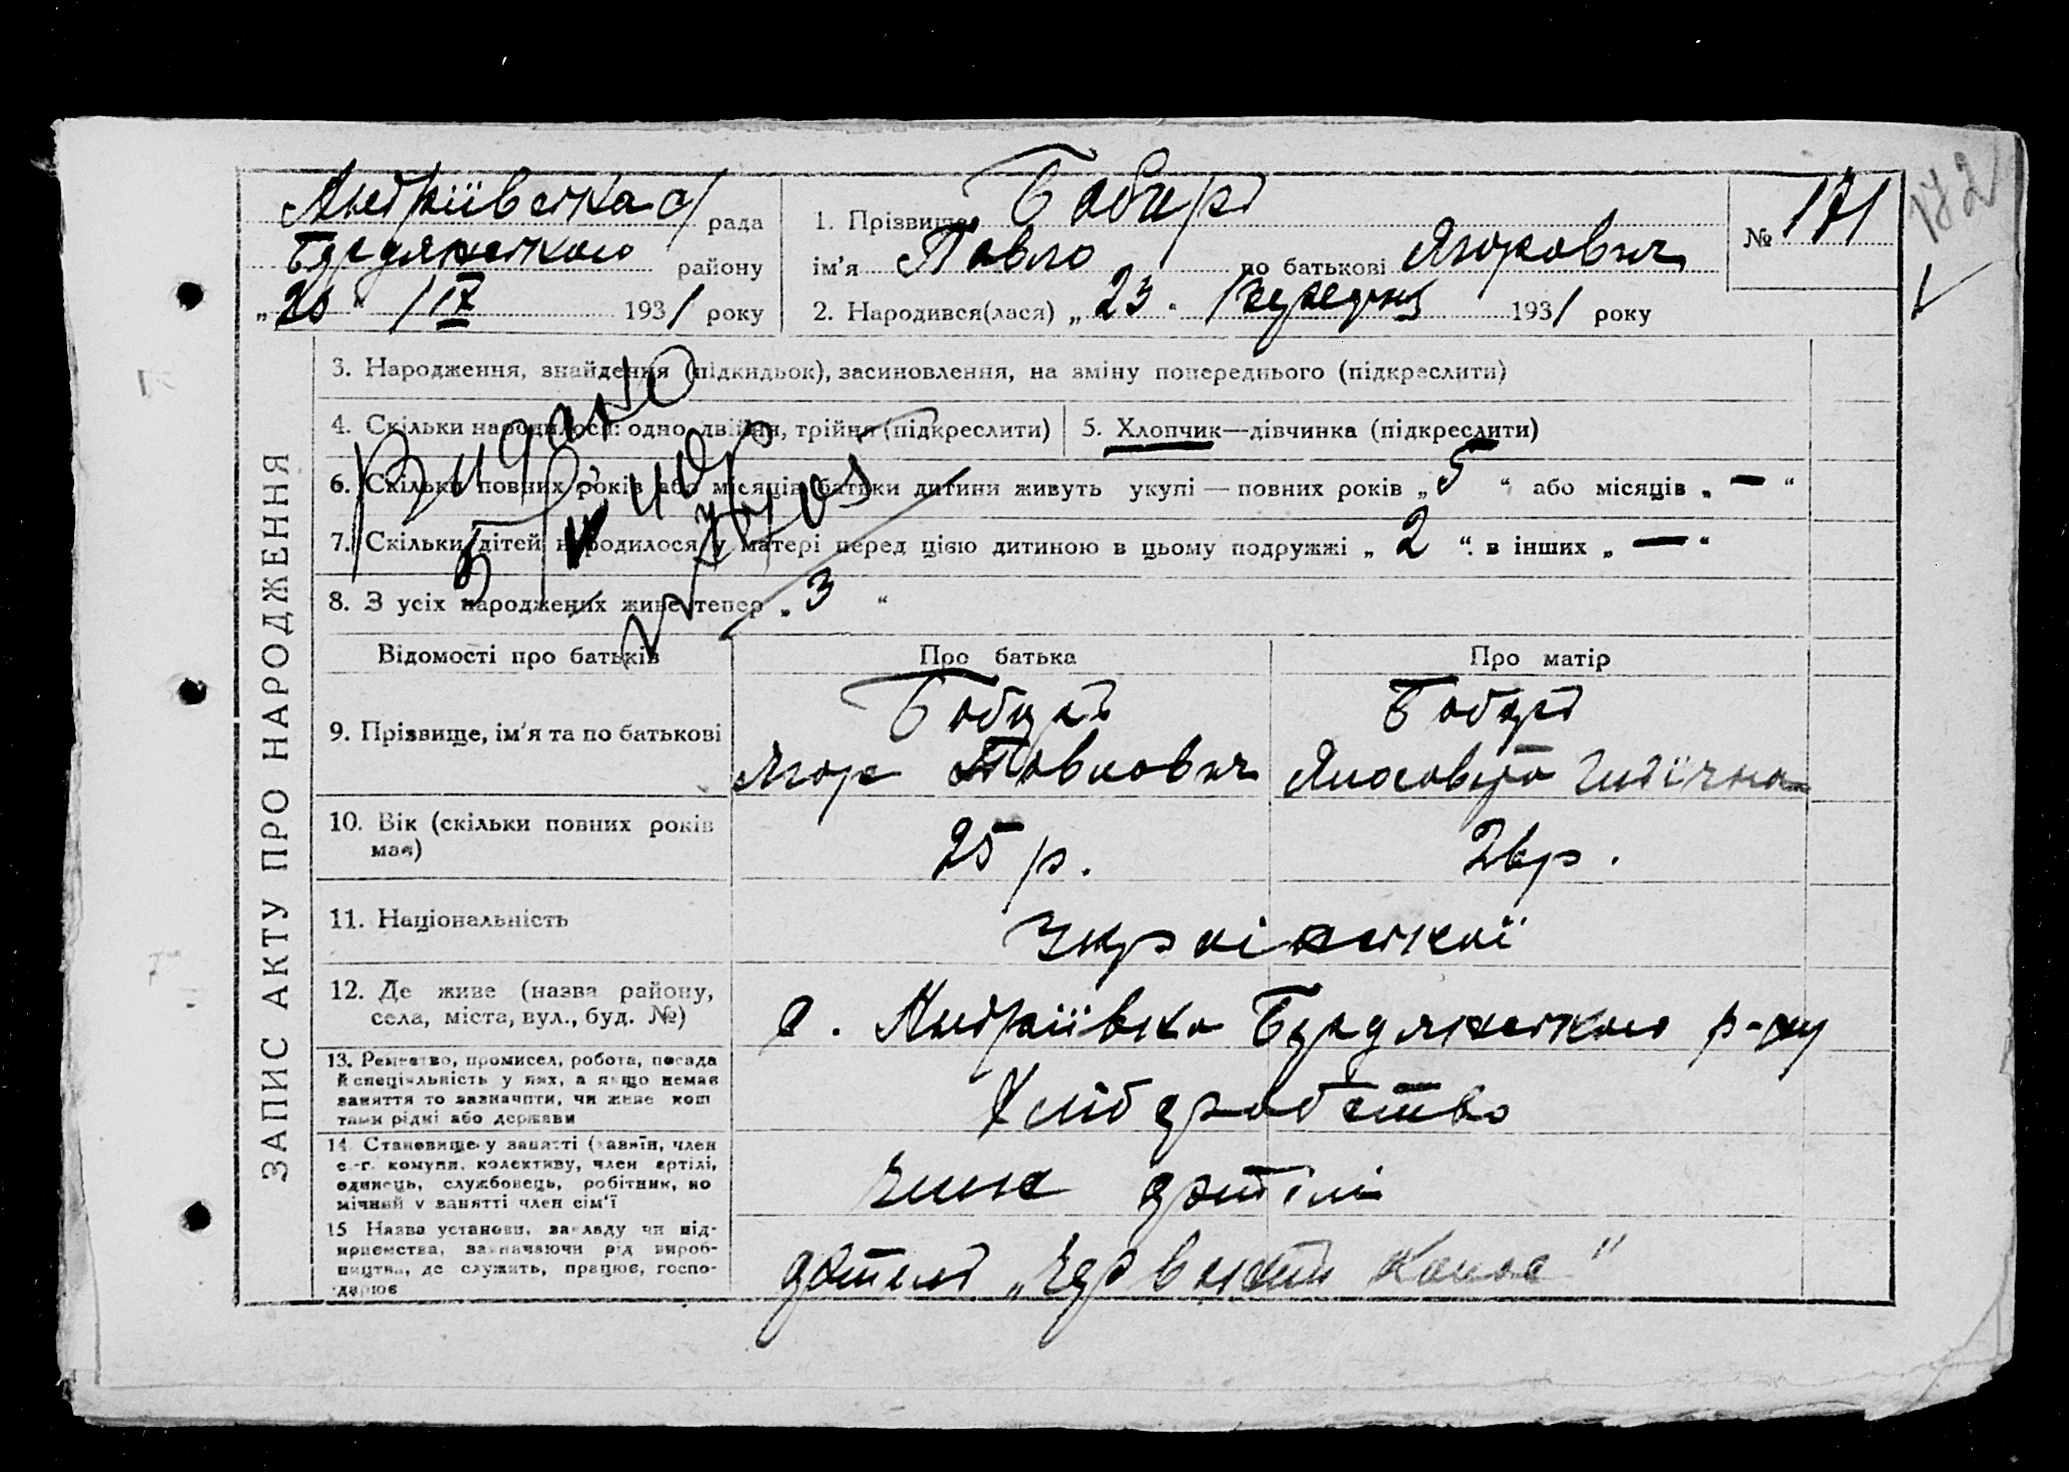 Андріївська с/рада
Бердянського району
„20“ / IV 1931 року
1. Прізвище
ім’я Павло по батькові Ягорович
2. Народився(лася) „23“ березня 1931 року
№ 171
172
ЗАПИС АКТУ ПРО НАРОДЖЕННЯ
3. Народження, знайдення (підкидьок), засиновлення, на зміну попереднього (підкреслити)
4. Скільки народилося: одно, двійня, трійня (підкреслити)
5. Хлопчик—дівчинка (підкреслити)
6. Скільки повних років або місяців батьки дитини живуть укупі — повних років „5“ або місяців „—“
7. Скільки дітей народилося у матері перед цією дитиною в цьому подружжі „2“. в інших „—“
8. З усіх народжених живе тепер „3“
Видано
Відомості про батьків
Про батька
Про матір
9. Прізвище, ім’я та по батькові
Ягор Павлович
10. Вік (скільки повних років має)
25 р.
11. Національність
Української
12. Де живе (назва району, села, міста, вул., буд. №)
с. Андріївка Бердянського р-ну
13. Ремество, промисел, робота, посада
й спеціяльність у них, а якщо немає
заняття то зазначити, чи живе кош
тами рідні або держави
Хліборобство
14. Становище у занятті (хазяїн, член
с.-г. комуни, колективу, член артілі,
одинець, службовець, робітник, по
мічний у занятті член сім’ї
член артілі
15 Назва установи, закладу чи під-
приємства, зазначаючи рід вироб-
ництва, де служить, працює, госпо-
дарює